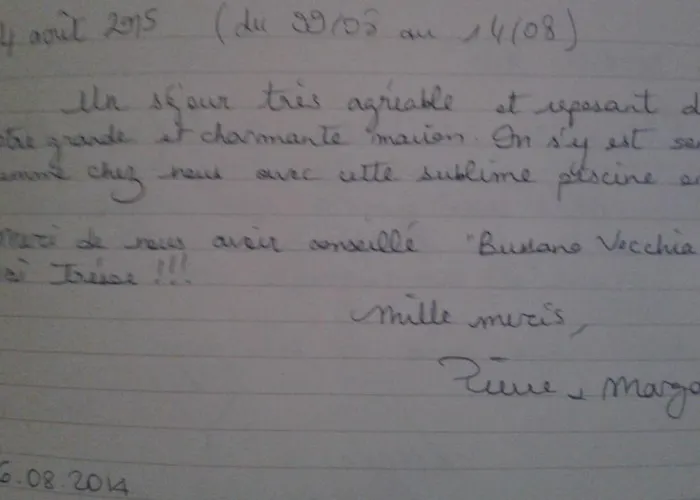 4 août 2015 (du 09/08 au 14/08)
Un séjour très agréable et reposant d
otre grande et charmante maison. On s'y est se
omme chez nous avec cette sublime piscine e
merci de nous avoir conseillé "Bussano Vecchia
Mille mercis,
Pierre & Margo
6.08.2014